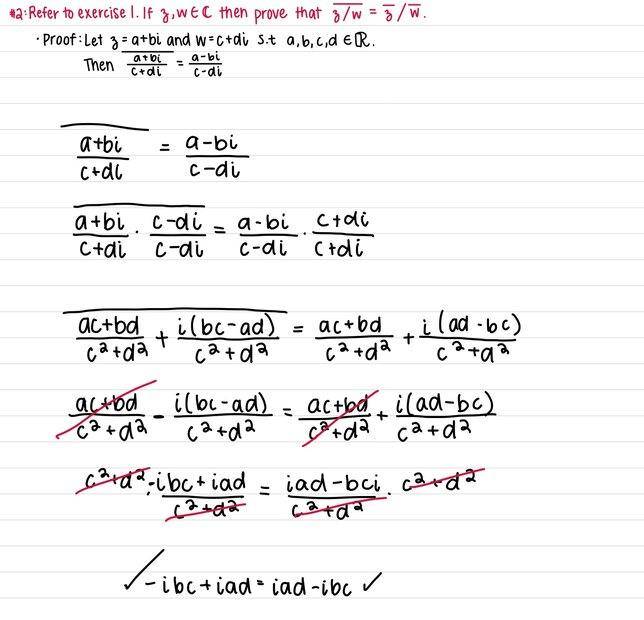 #2: Refer to exercise 1. If z, w ∈ ℂ then prove that \overline{z/w} = \overline{z} / \overline{w}.
· Proof: Let z = a+bi and w = c+di s.t a,b,c,d ∈ ℝ.
Then \overline{\frac{a+bi}{c+di}} = \frac{a-bi}{c-di}
\overline{\frac{a+bi}{c+di}} = \frac{a-bi}{c-di}
\overline{\frac{a+bi}{c+di} · \frac{c-di}{c-di}} = \frac{a-bi}{c-di} · \frac{c+di}{c+di}
\overline{\frac{ac+bd}{c²+d²} + \frac{i(bc-ad)}{c²+d²}} = \frac{ac+bd}{c²+d²} + \frac{i(ad-bc)}{c²+d²}
\frac{ac+bd}{c²+d²} - \frac{i(bc-ad)}{c²+d²} = \frac{ac+bd}{c²+d²} + \frac{i(ad-bc)}{c²+d²}
c²+d² · \frac{-ibc+iad}{c²+d²} = \frac{iad-bci}{c²+d²} · c²+d²
✓ -ibc+iad = iad-ibc ✓